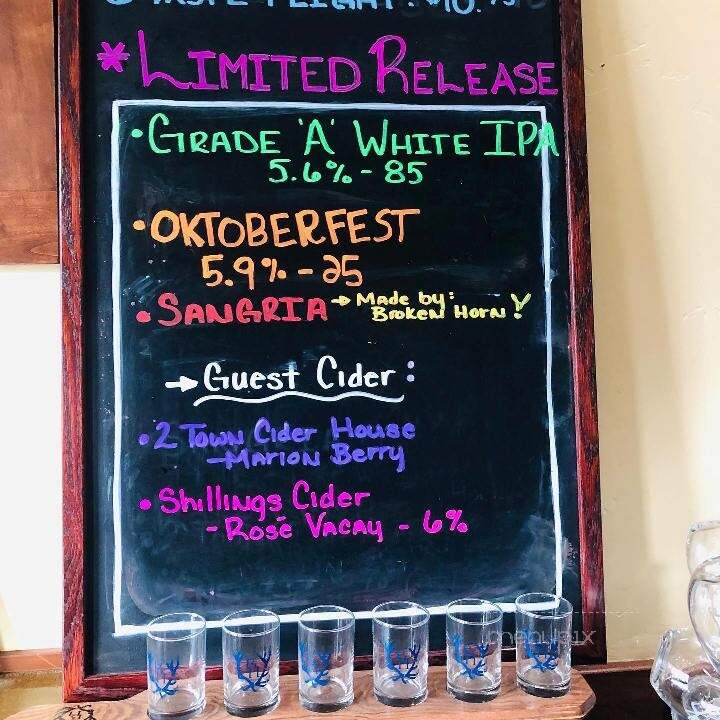 TASTE FLIGHT: $10.75
* LIMITED RELEASE
• GRADE 'A' WHITE IPA
5.6% - 85
• OKTOBERFEST
5.9% - 25
• SANGRIA → Made by:
Broken Horn!
→ Guest Cider:
• 2 Town Cider House
- Marion Berry
• Shillings Cider
- Rosé Vacay - 6%